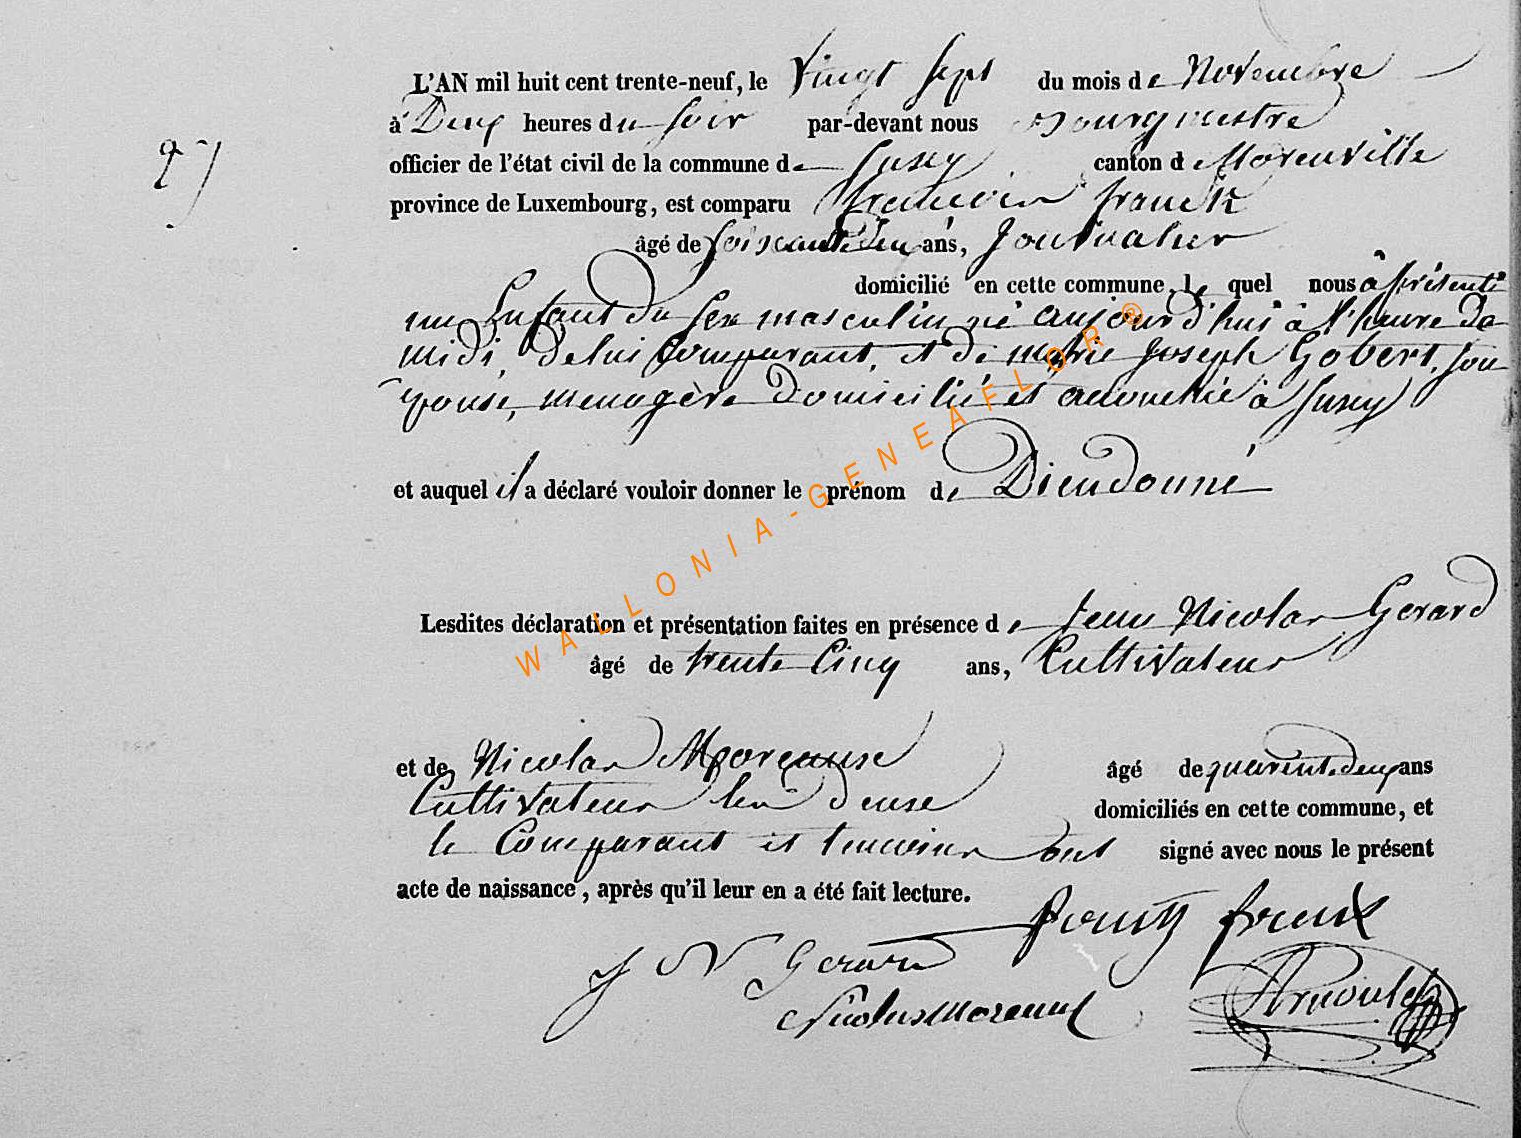 L'AN mil huit cent trente-neuf, le vingt sept du mois de Novembre
à Deux heures du soir par-devant nous Bourgmestre
27
officier de l'état civil de la commune de Suxy canton de Florenville
province de Luxembourg, est comparu François franck
âgé de soixante deux ans, Journalier
domicilié en cette commune, le quel nous à présenté
un Enfant du sexe masculin né aujourd'hui à l'heure de
midi, de lui comparant, et de marie Joseph Gobert, son
épouse, menagère domiciliée et accouchée à Suxy
et auquel il a déclaré vouloir donner le prénom de Dieudonné
Lesdites déclaration et présentation faites en présence de Jean Nicolas Gerard
âgé de trente Cinq ans, Cultivateur
et de Nicolas Moreaux âgé de quarente deux ans
Cultivateur les deux domiciliés en cette commune, et
le Comparant et temoins ont signé avec nous le présent
acte de naissance, après qu'il leur en a été fait lecture.
franck
J N Gerard
Nicolas Moreaux
Arnould
WALLONIA-GENEAFLOR®